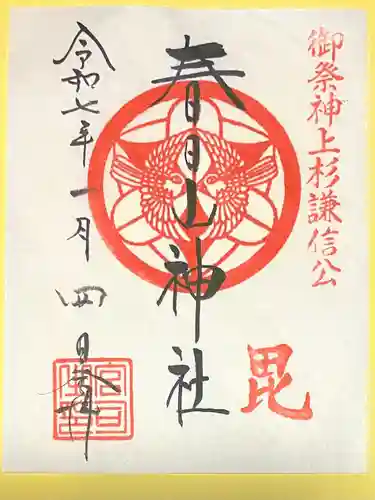 御祭神上杉謙信公
毘
春日山神社
令和七年一月四日